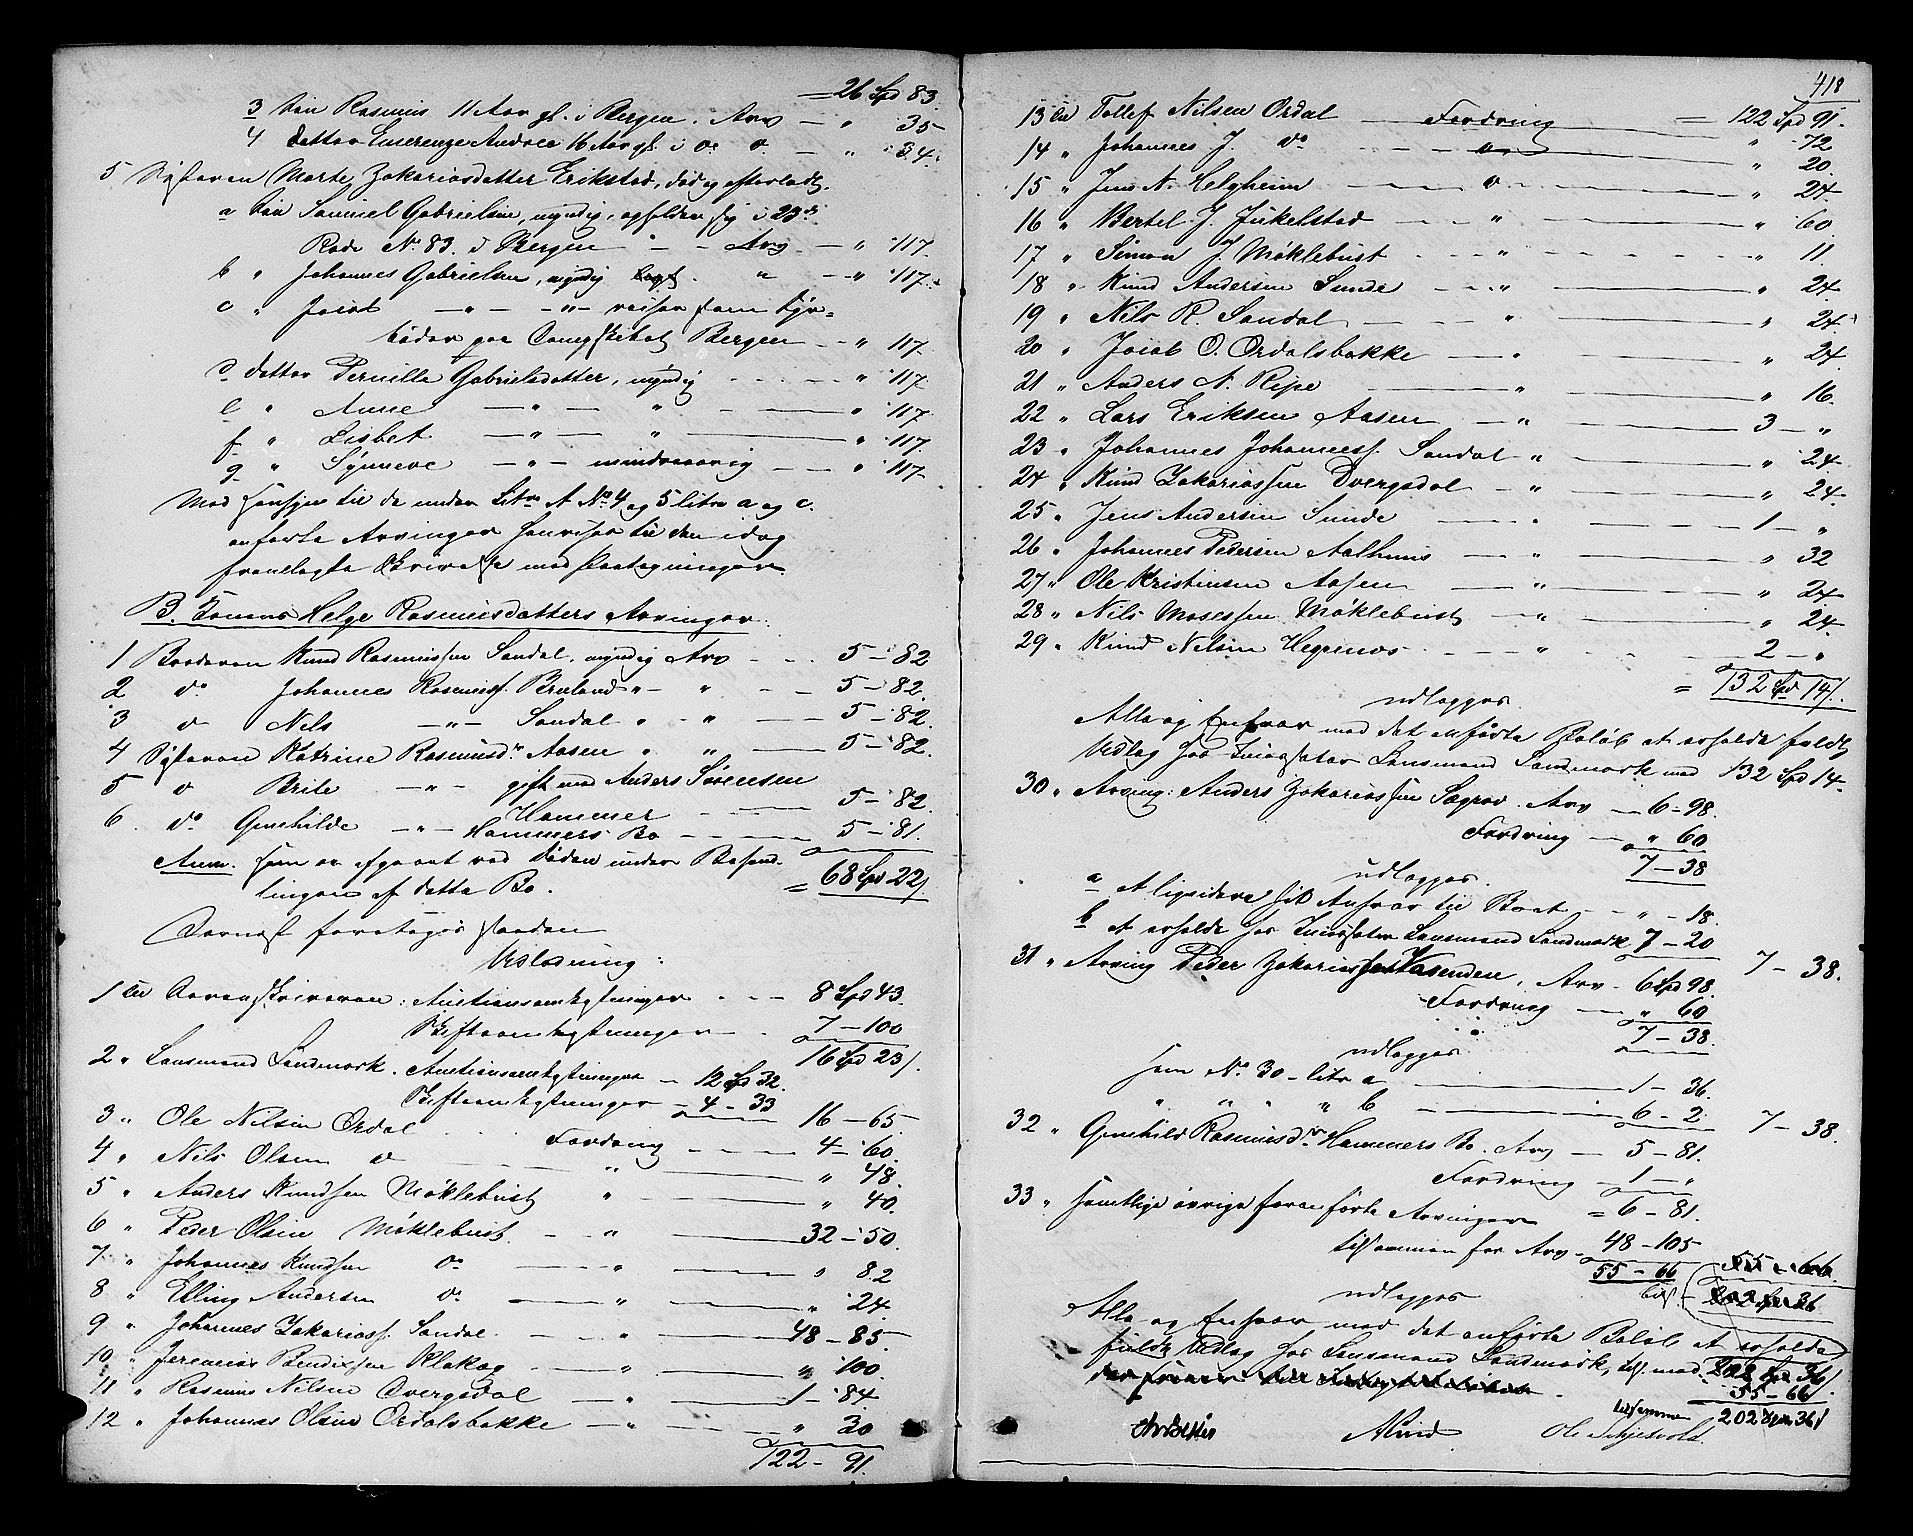 = 26 Spd 83.
3 Søn Rasmus 11 Aar gl. i Bergen. Arv — " 35
4 Datter Andrea 16 Aar gl. i do do — " 34.
5 Søsteren Marte Zakariasdatter Erikstad, død og efterladt.
a Søn Samuel Gabrielsen, myndig, opholder sig i 23de
Rode No 83. i Bergen — Arv — " 117.
b " Johannes Gabrielsen, myndig " — " 117.
c " Jacob — " — " — reiser som
paa Dampskibet Bergen — " 117.
d datter Pernille Gabrielsdatter, myndig — " 117.
e " Anne — " — " — " 117.
f " Lisbet — " — " — " 117.
g " Synneve — " — mindreaarig — " 117.
Med Hensyn til de under Litra A No 4 og 5 litra a og c.
anførte Arvinger henvises til den idag
fremlagte Skrivelse med Paategninger.
B. Konens Helge Rasmusdatters Arvinger.
1 Broderen Knud Rasmussen Sandal, myndig Arv — 5 – 82
2 do Johannes Rasmuss. Bruland " — " — 5 – 82.
3 do Nils — " — Sandal " — " — 5 – 82.
4 Søsteren Katrine Rasmusdr Aasen " " — 5 – 82.
5 do Brite — " — gift med Anders Sørensen
Hammer — 5 – 82.
6. do Gunhilde — " — Hammers Bo — 5 – 81.
Anm. som er afgaaet ved Døden under Behand- = 68 Spd 22/.
lingen af dette Bo.
Dernæst foretoges saadan
Udlodning:
1 Til Sorenskriveren: Auctionsomkostninger — 8 Spd 43.
Skifteomkostninger — 7 – 100
16 Spd 23/.
2 " Lensmand Landmark. Auctionsomkostninger — 12 Spd 32.
Skifteomkostninger — 4 – 33
16 – 65.
3 " Ole Nilsen Ordal — Fordring — 4 – 60.
4 " Nils Olsen do — " — " 48.
5 " Anders Knudsen Møklebust " — " 40.
6 " Peder Olsen Møklebust. — " — 32 – 50.
7 " Johannes Knudsen do — " — " 82
8 " Elling Andersen do — " — " 24
9 " Johannes Zakariass. Sandal. — " — 48 – 85.
10 " Jeremias Bendixsen Klakeg — " — " 100.
11 " Rasmus Nilsen Dvergsdal — " — 1 – 84
12 " Johannes Olsen Ordalsbakke — " — " 30
122 – 91.
418
13 Til Tollef Nilsen Ordal — Fordring — = 122 Spd 91.
" 72
14 " Johannes J. do — " — " 20.
15 " Jens N. Helgheim — " — " 24.
16 " Bertel J. Jukelstad — " — " 60.
17 " Simon J. Møklebust — " — " 11
18 " Knud Andersen Sunde — " — " 24.
19 " Nils R. Sandal — " — " 24.
20 " Jacob O. Ordalsbakke — " — " 24.
21 " Anders N. Ripe — " — " 16.
22 " Lars Eriksen Aasen — " — 3 – "
23 " Johannes Johanness. Sandal " — " 24.
24 " Knud Zakariassen Dvergsdal — " — " 24.
25 " Jens Andersen Sunde — " — 1 – "
26 " Johannes Pedersen Aalhuus — " — " 32
27 " Ole Kristensen Aasen — " — " 24.
28 " Nils Mosessen Møklebust — " — " 24.
29 " Knud Nilsen Hegrenæs — " — 2 – "
= 132 Spd 14/.
udlægges.
Alle og Enhver med det anførte Beløb at erholde fuldt
Udlæg hos Incassator Lensmand Landmark med 132 Spd 14.
30 " Arving: Anders Zakariassen Sægrov. Arv — 6 – 98.
Fordring — " 60
7 – 38
udlægges.
a At liqvidere sit Ansvar til Boet — " – 18.
b at erholde hos Incassator Lensmand Landmark 7 – 20
7 – 38.
31 " Arving Peder Zakariassen Vasenden, Arv — 6 Spd 98.
Fordring — " 60
7 – 38.
udlægges
som No 30 – litra a — 1 – 36.
" " " " b — 6 – 2.
7 – 38.
32 " Gunhild Rasmusdr Hammers Bo. Arv — 5 – 81.
Fordring — 1 – "
= 6 – 81.
33 " samtlige øvrige foranførte Arvinger
tilsammen for Arv — 48 – 105
55 – 66
55 – 66.
udlægges
tils. — 202 Spd 36
Alle og Enhver med det anførte Beløb at erholde
fuldt Udlæg hos Lensmand Landmark, tils. med
55 – 66/.
tilsammen 202 Spd 36/
Ole Schjelvold.